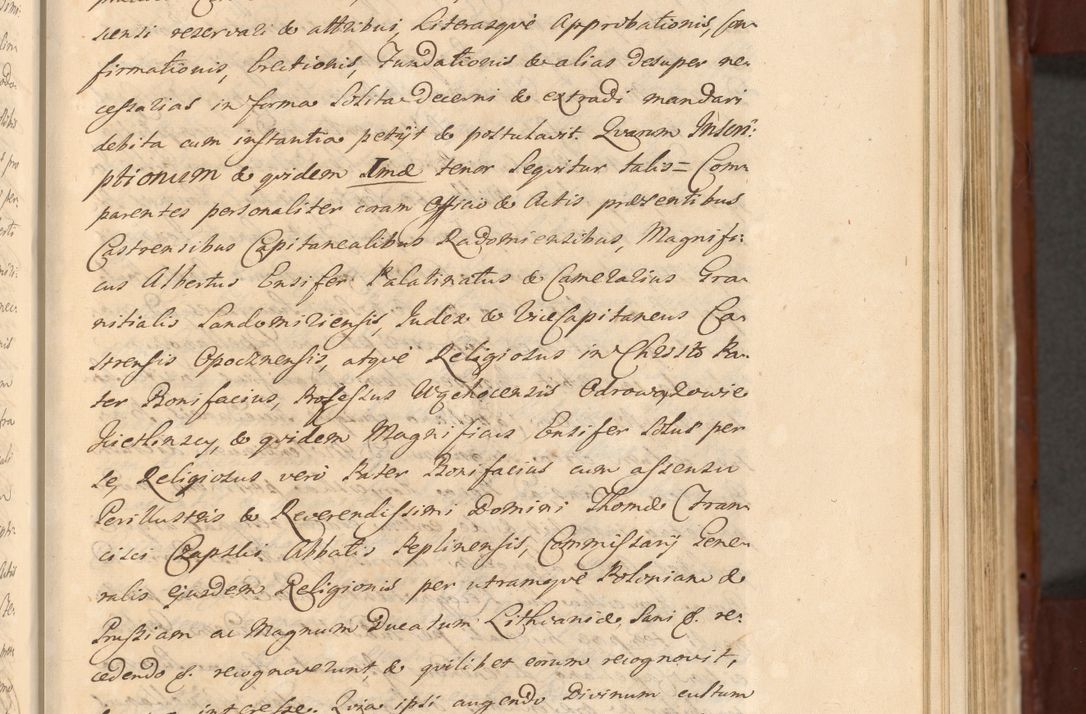 siensi reservari & attribui, Literasqve Approbationis, Con
firmationis, Erectionis, Fundationis & alias desuper ne
cessarias in forma Solita Decerni & extradi mandari
debita cum instantia petijt & postulavit. Qvarum Inscri:
ptionum & qvidem Imæ tenor Seqvitur talis= Com
parentes personaliter coram Officio & Actis præsentibus
Castrensibus Capitanealibus Radomiensibus, Magnifi:
cus Albertus Ensifer Palatinatus & Camerarius Gra
nitialis Sandomiriensis, Judex & ViceCapitaneus Ca
strensis Opocznensis, atqve Religiosus in Christo Pa
ter Bonifacius, Professus Wąchocensis Odrowążowie
Kietlinscy, & qvidem Magnificus Ensifer Solus per
se, Religiosus verò Pater Bonifacius cum assensu
Perillustris & Reverendissimi Domini Thomæ Fran
cisci Czapski Abbatis Peplinensis, Commissarij Gene
ralis ejusdem Religionis per utramqve Poloniam &
Prussiam ac Magnum Ducatum Lithvaniæ, Sani &. re:
cedendo &. recognoverunt, & qvilibet eorum recognovit,
interesse. Qvia ipsi augendo Divinum cultum